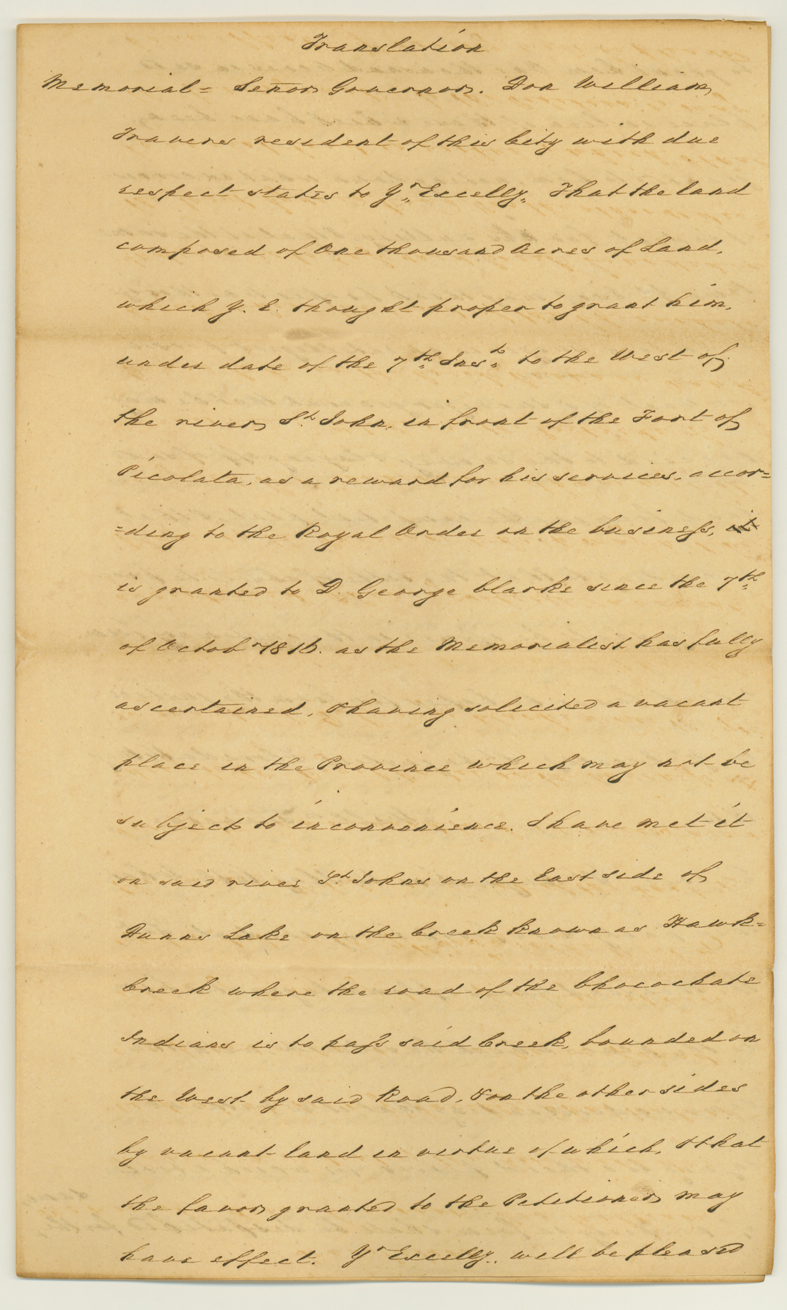 Translation
Memorial = Señor Governor. Don William
Travers resident of this City with due
respect states to Yr. Excelly. That the land
composed of One thousand Acres of Land,
which Y. E. thought proper to grant him,
under date of the 7th Inst. to the West of
the river St John, in front of the Fort of
Picolata, as a reward for his services, accor=
=ding to the Royal Order on the business, it
is granted to D. George Clarke since the 7th
of Octobr 1816. as the Memorialist has fully
ascertained, & having solicited a vacant
place in the Province which may not be
subject to inconvenience. I have met it
on said river St Johns on the East side of
Dunns Lake on the Creek known as Hawk=
Creek where the road of the Chocochate
Indians is to pass said Creek, bounded on
the West by said Road, & on the other sides
by vacant land in virtue of which, & that
the favor granted to the Petitioner may
have effect. Yr Excelly. will be pleased